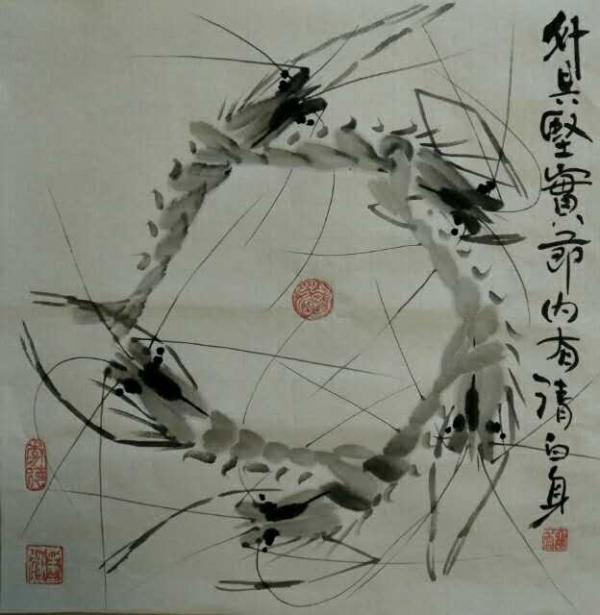 外具堅實節内有清白身